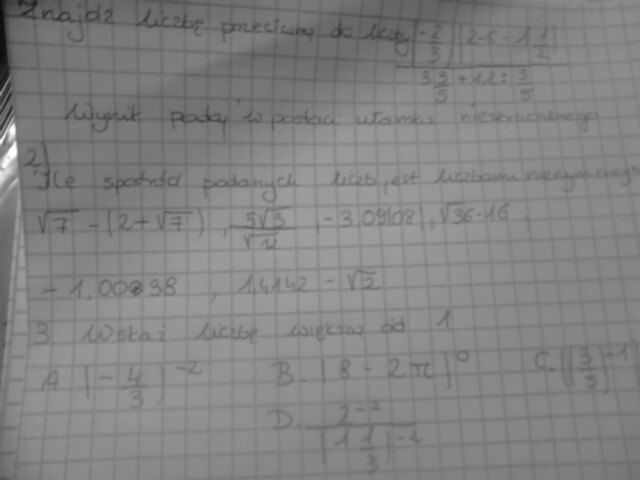 Znajdź liczbę przeciwną do liczby (-2/3)(2-6-1 1/2) / 3 3/5 + 1,2 : 3/5
Wynik podaj w postaci ułamka
2)
Ile spośród podanych liczb jest liczbami
√7 - (2+√7), 5√5/√12, -3,09(08), √36·16
-1,00838, 1,4142 - √2
3 Wskaż liczbę większą od 1
A (-4/3)^-2 B. (8-2π)^0 C. (3/3)^-1
D. 2^-2 / (1 1/3)^-2